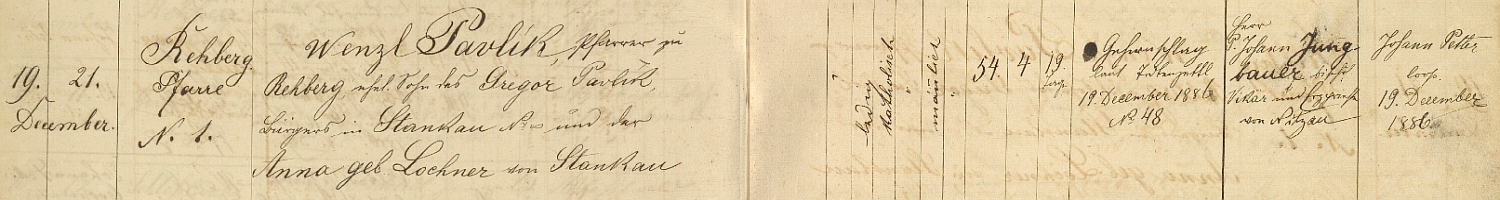 19. 21.
December.
Rehberg
Pfarre
N. 1.
Wenzl Pavlík, Pfarrer zu
Rehberg, ehel. Sohn des Gregor Pavlík,
Bürgers in Stankau No – und der
Anna geb. Lochner von Stankau
ledig
katholisch
männlich
54. 4 19
Tage
Gehirnschlag
laut Todtenzettl
19. December 1886
No 48
Herr
P. Johann Jung-
bauer, bischöf
Vikär und
von Nitzau
Johann Petter
19. December
1886